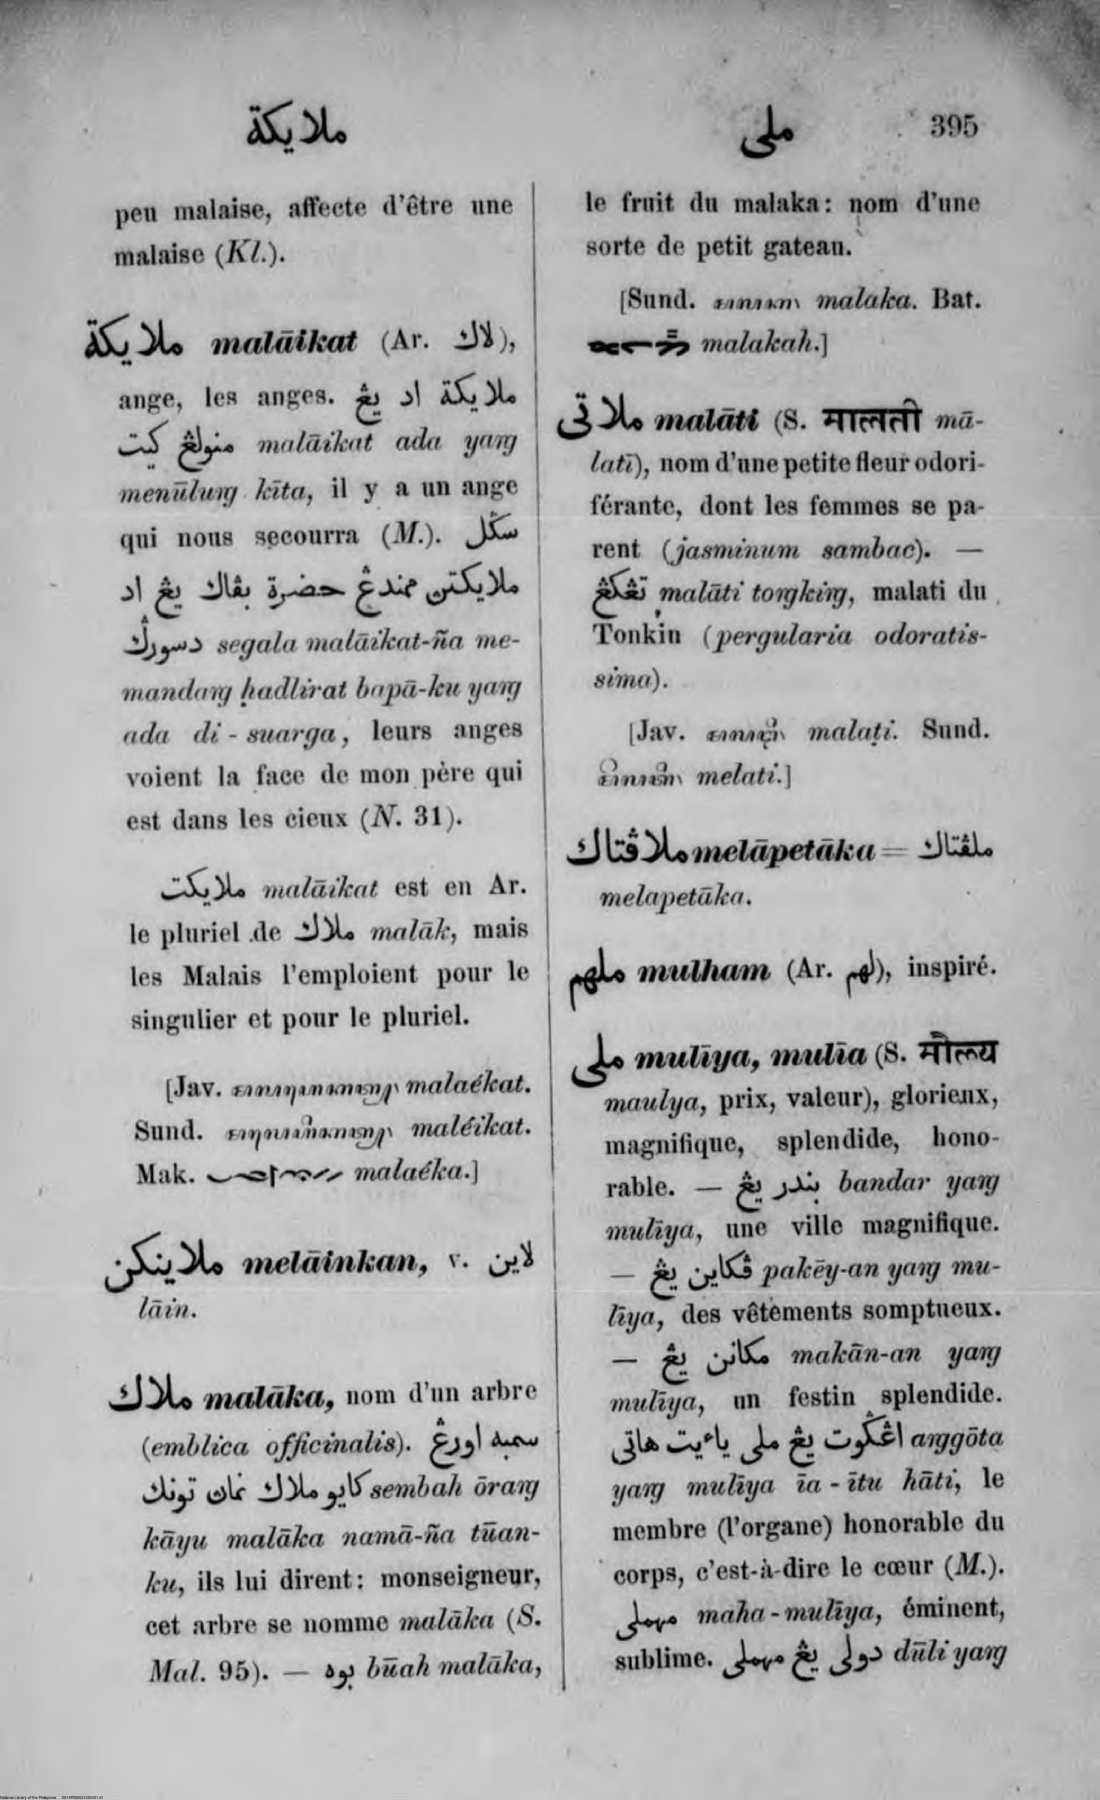 ملايكة
ملى
395
peu malaise, affecte d'être une
malaise (Kl.).
ملايكة malāikat (Ar. لاك),
ange, les anges. ملايكة اد يڠ
منولڠ كيت malāikat ada yaṅg
menūluṅg kīta, il y a un ange
qui nous secourra (M.). سݢل
ملايكتن ممندڠ حضرة بڤاك يڠ اد
دسورݢ segala malāikat-ña me-
mandaṅg ḥadlirat bapā-ku yaṅg
ada di-suarga, leurs anges
voient la face de mon père qui
est dans les cieux (N. 31).
ملايكت malāikat est en Ar.
le pluriel de ملاك malāk, mais
les Malais l'emploient pour le
singulier et pour le pluriel.
[Jav. malaékat.
Sund. maléikat.
Mak. malaéka.]
ملاينكن melāinkan, v. لاين
lāin.
ملاك malāka, nom d'un arbre
(emblica officinalis). سمبه اورڠ
كايو ملاك نمان تونك sembah ōraṅg
kāyu malāka namā-ña tūan-
ku, ils lui dirent: monseigneur,
cet arbre se nomme malāka (S.
Mal. 95). — بوه būah malāka,
le fruit du malaka: nom d'une
sorte de petit gateau.
[Sund. malaka. Bat.
malakah.]
ملاتي malāti (S. मालती mā-
latī), nom d'une petite fleur odori-
férante, dont les femmes se pa-
rent (jasminum sambac). —
تڠكڠ malāti toṅgkiṅg, malati du
Tonkin (pergularia odoratis-
sima).
[Jav. malaṭi. Sund.
melati.]
ملاڤتاك melāpetāka = ملڤتاك
melapetāka.
ملهم mulham (Ar. لهم), inspiré.
ملي mulīya, mulīa (S. मौल्य
maulya, prix, valeur), glorieux,
magnifique, splendide, hono-
rable. — بندر يڠ bandar yaṅg
mulīya, une ville magnifique.
— ڤكاين يڠ pakēy-an yaṅg mu-
līya, des vêtements somptueux.
— مكانن يڠ makān-an yaṅg
mulīya, un festin splendide.
اڠݢوت يڠ ملي ياءيت هاتي aṅggōta
yaṅg mulīya īa-ītu hāti, le
membre (l'organe) honorable du
corps, c'est-à-dire le cœur (M.).
مهملي maha-mulīya, éminent,
sublime. دولي يڠ مهملي dūli yaṅg